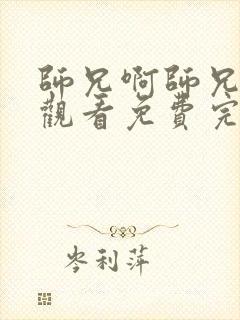 師兄啊師兄
觀看免費完
岑利萍